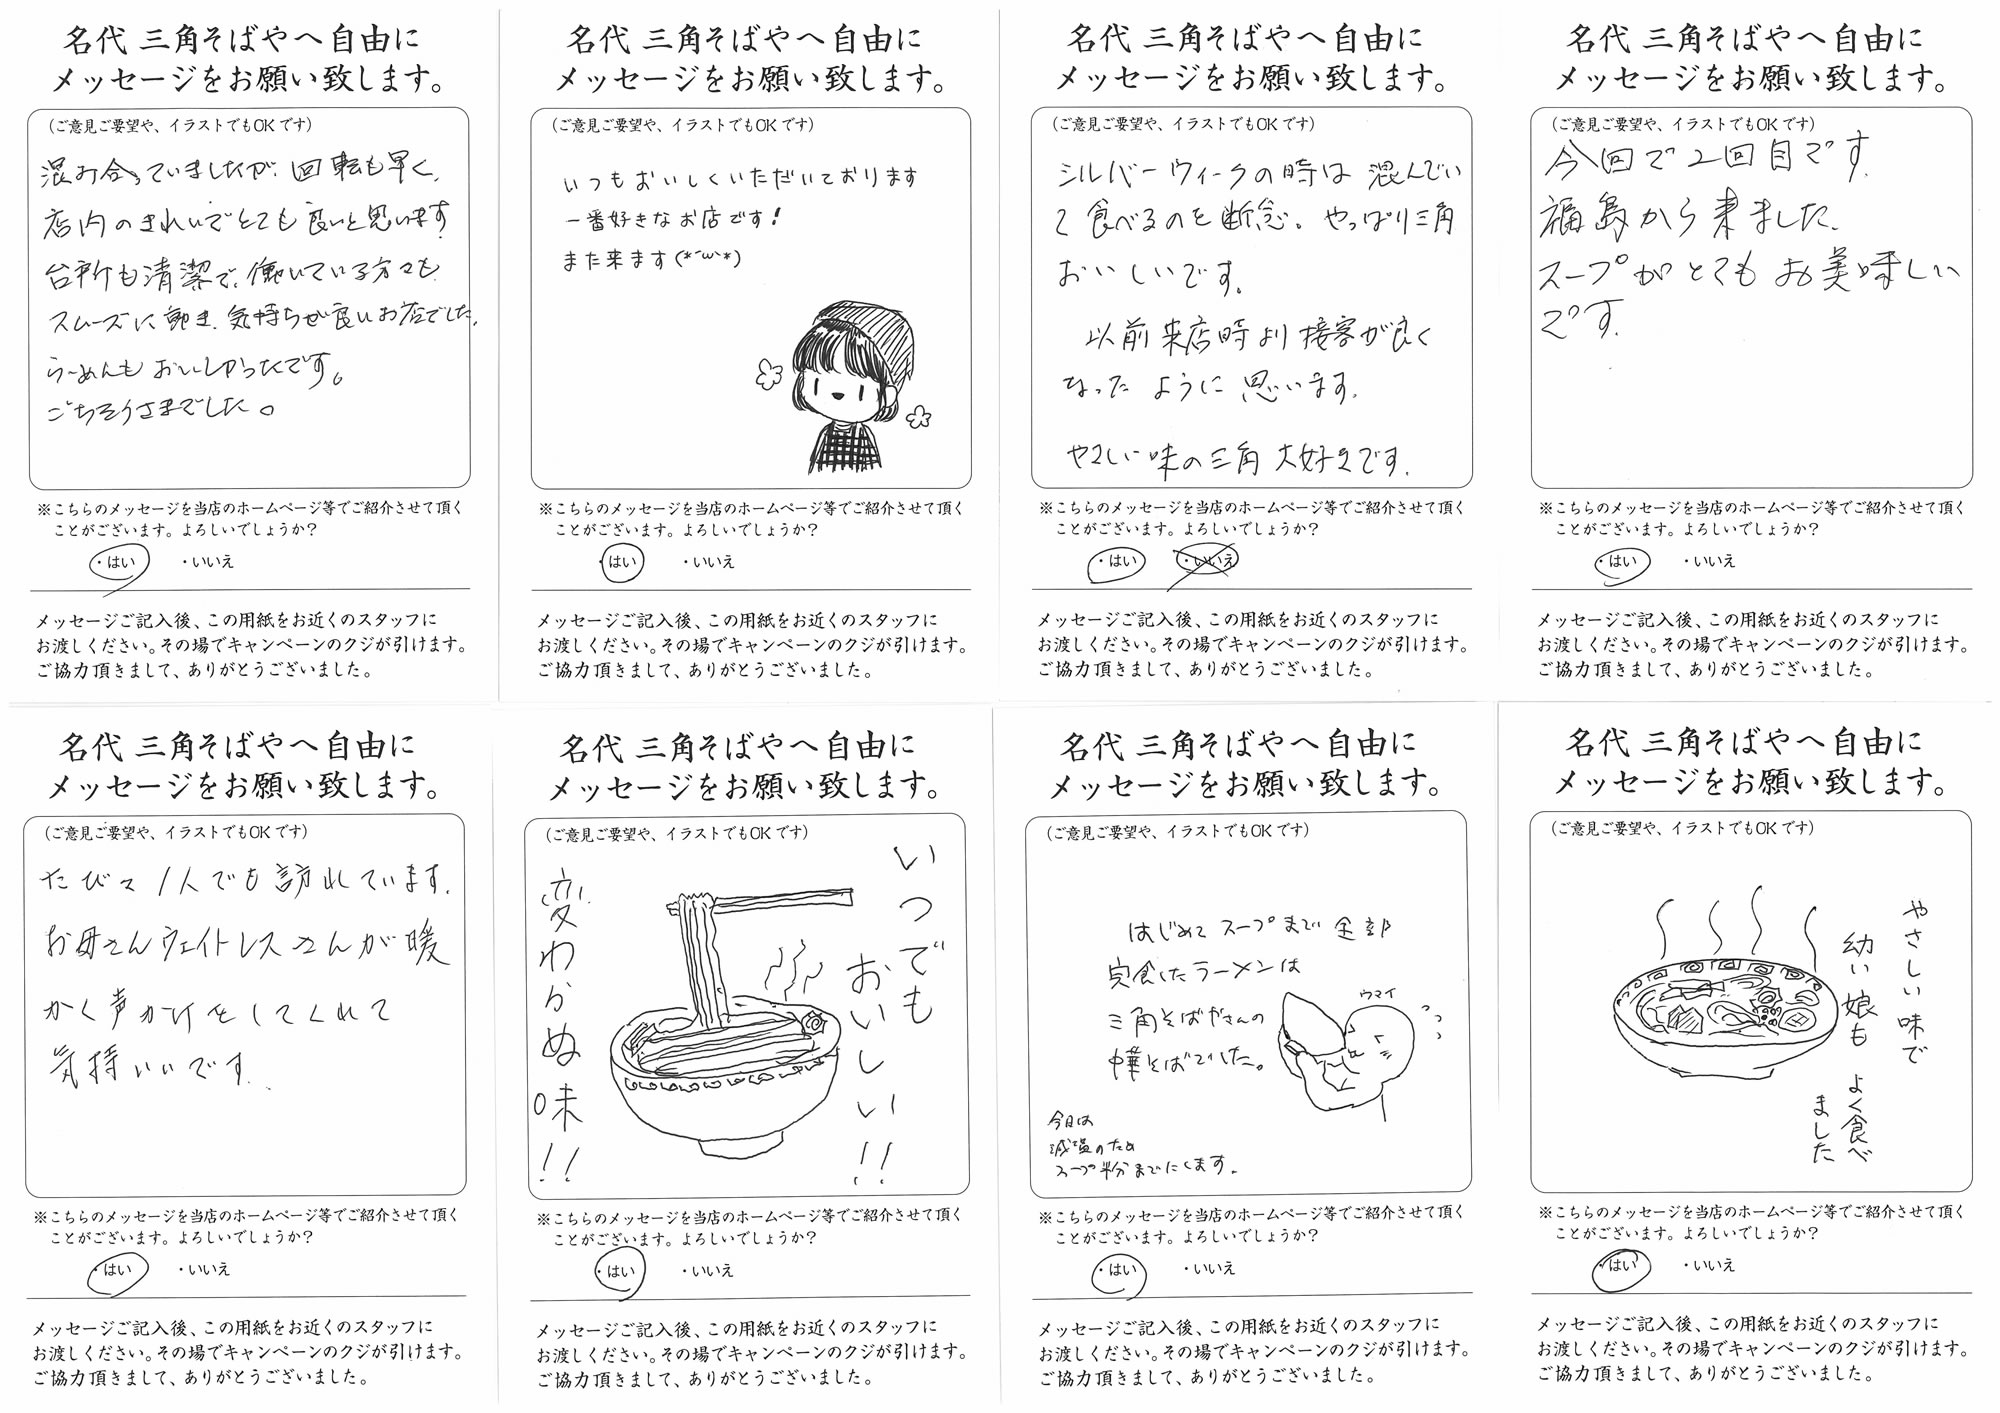 名代 三角そばやへ自由に
メッセージをお願い致します。
（ご意見ご要望や、イラストでもOKです）
混み合っていましたが、回転も早く、
店内のきれいでとても良いと思います。
台所も清潔で、働いている方々も
スムーズに動き、気持ちが良いお店でした。
らーめんもおいしかったです。
ごちそうさまでした。
※こちらのメッセージを当店のホームページ等でご紹介させて頂く
ことがございます。よろしいでしょうか？
・はい ・いいえ
メッセージご記入後、この用紙をお近くのスタッフに
お渡しください。その場でキャンペーンのクジが引けます。
ご協力頂きまして、ありがとうございました。
名代 三角そばやへ自由に
メッセージをお願い致します。
（ご意見ご要望や、イラストでもOKです）
いつもおいしくいただいております
一番好きなお店です！
また来ます(*´ω`*)
※こちらのメッセージを当店のホームページ等でご紹介させて頂く
ことがございます。よろしいでしょうか？
・はい ・いいえ
メッセージご記入後、この用紙をお近くのスタッフに
お渡しください。その場でキャンペーンのクジが引けます。
ご協力頂きまして、ありがとうございました。
名代 三角そばやへ自由に
メッセージをお願い致します。
（ご意見ご要望や、イラストでもOKです）
シルバーウィークの時は 混んでい
て 食べるのを断念。やっぱり三角
おいしいです。
以前来店時より接客が良く
なったように思います。
やさしい味の三角 大好きです。
※こちらのメッセージを当店のホームページ等でご紹介させて頂く
ことがございます。よろしいでしょうか？
・はい ・いいえ
メッセージご記入後、この用紙をお近くのスタッフに
お渡しください。その場でキャンペーンのクジが引けます。
ご協力頂きまして、ありがとうございました。
名代 三角そばやへ自由に
メッセージをお願い致します。
（ご意見ご要望や、イラストでもOKです）
今回で2回目です。
福島から来ました。
スープがとてもお美味しい
です。
※こちらのメッセージを当店のホームページ等でご紹介させて頂く
ことがございます。よろしいでしょうか？
・はい ・いいえ
メッセージご記入後、この用紙をお近くのスタッフに
お渡しください。その場でキャンペーンのクジが引けます。
ご協力頂きまして、ありがとうございました。
名代 三角そばやへ自由に
メッセージをお願い致します。
（ご意見ご要望や、イラストでもOKです）
たびヌ 1人でも訪れています。
お母さんウェイトレスさんが暖
かく声かけをしてくれて
気持いいです。
※こちらのメッセージを当店のホームページ等でご紹介させて頂く
ことがございます。よろしいでしょうか？
・はい ・いいえ
メッセージご記入後、この用紙をお近くのスタッフに
お渡しください。その場でキャンペーンのクジが引けます。
ご協力頂きまして、ありがとうございました。
名代 三角そばやへ自由に
メッセージをお願い致します。
（ご意見ご要望や、イラストでもOKです）
いつでも
おいしい!!
変わかぬ味!!
※こちらのメッセージを当店のホームページ等でご紹介させて頂く
ことがございます。よろしいでしょうか？
・はい ・いいえ
メッセージご記入後、この用紙をお近くのスタッフに
お渡しください。その場でキャンペーンのクジが引けます。
ご協力頂きまして、ありがとうございました。
名代 三角そばやへ自由に
メッセージをお願い致します。
（ご意見ご要望や、イラストでもOKです）
はじめて スープまで 全部
完食したラーメンは
三角そばやさんの
中華そばでした。
ウマイ
今日は
減塩のため
スープ半分までにします。
※こちらのメッセージを当店のホームページ等でご紹介させて頂く
ことがございます。よろしいでしょうか？
・はい ・いいえ
メッセージご記入後、この用紙をお近くのスタッフに
お渡しください。その場でキャンペーンのクジが引けます。
ご協力頂きまして、ありがとうございました。
名代 三角そばやへ自由に
メッセージをお願い致します。
（ご意見ご要望や、イラストでもOKです）
やさしい味で
幼い娘も よく食べ
ました
※こちらのメッセージを当店のホームページ等でご紹介させて頂く
ことがございます。よろしいでしょうか？
・はい ・いいえ
メッセージご記入後、この用紙をお近くのスタッフに
お渡しください。その場でキャンペーンのクジが引けます。
ご協力頂きまして、ありがとうございました。